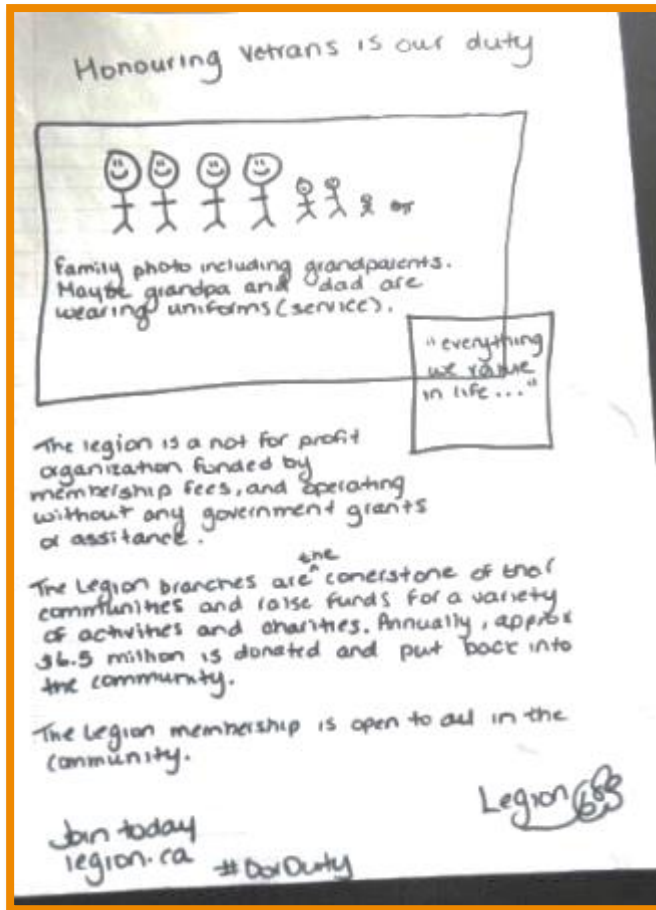 Honouring vetrans is our duty
Family photo including grandparents.
Maybe grandpa and dad are
wearing uniforms (service).
"everything
we value
in life..."
The legion is a not for profit
organization funded by
membership fees, and operating
without any government grants
or assitance.
The Legion branches are the conerstone of
communities and raise funds for a variety
of activities and charities. Annually, approx
$6.5 million is donated and put back into
the community.
The Legion membership is open to all in the
community.
Legion
Join today
legion.ca #OurDuty